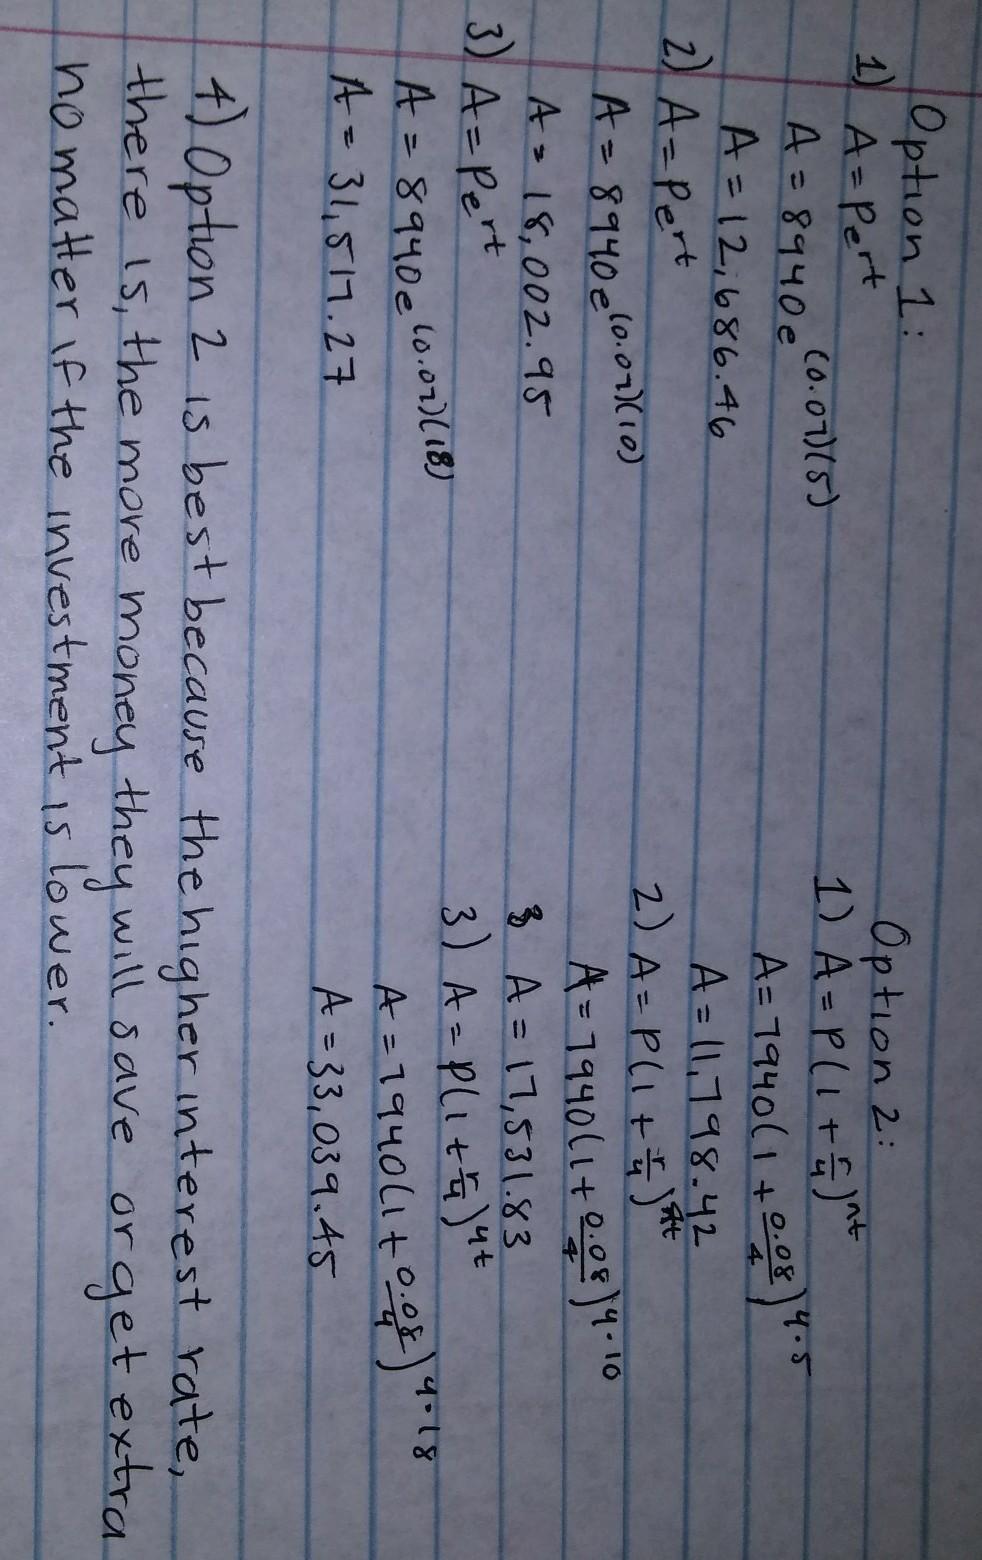 Option 1:
1) A = Pe^rt
A = 8940e^(0.07)(5)
A = 12,686.46
2) A = Pe^rt
A = 8940e^(0.07)(10)
A = 18,002.95
3) A = Pe^rt
A = 8940e^(0.07)(18)
A = 31,517.27
Option 2:
1) A = P(1 + r/4)^nt
A = 7940(1 + 0.08/4)^4·5
A = 11,798.42
2) A = P(1 + r/4)^4t
A = 7940(1 + 0.08/4)^4·10
A = 17,531.83
3) A = P(1 + r/4)^4t
A = 7940(1 + 0.08/4)^4·18
A = 33,039.45
4) Option 2 is best because the higher interest rate,
there is, the more money they will save or get extra
no matter if the investment is lower.